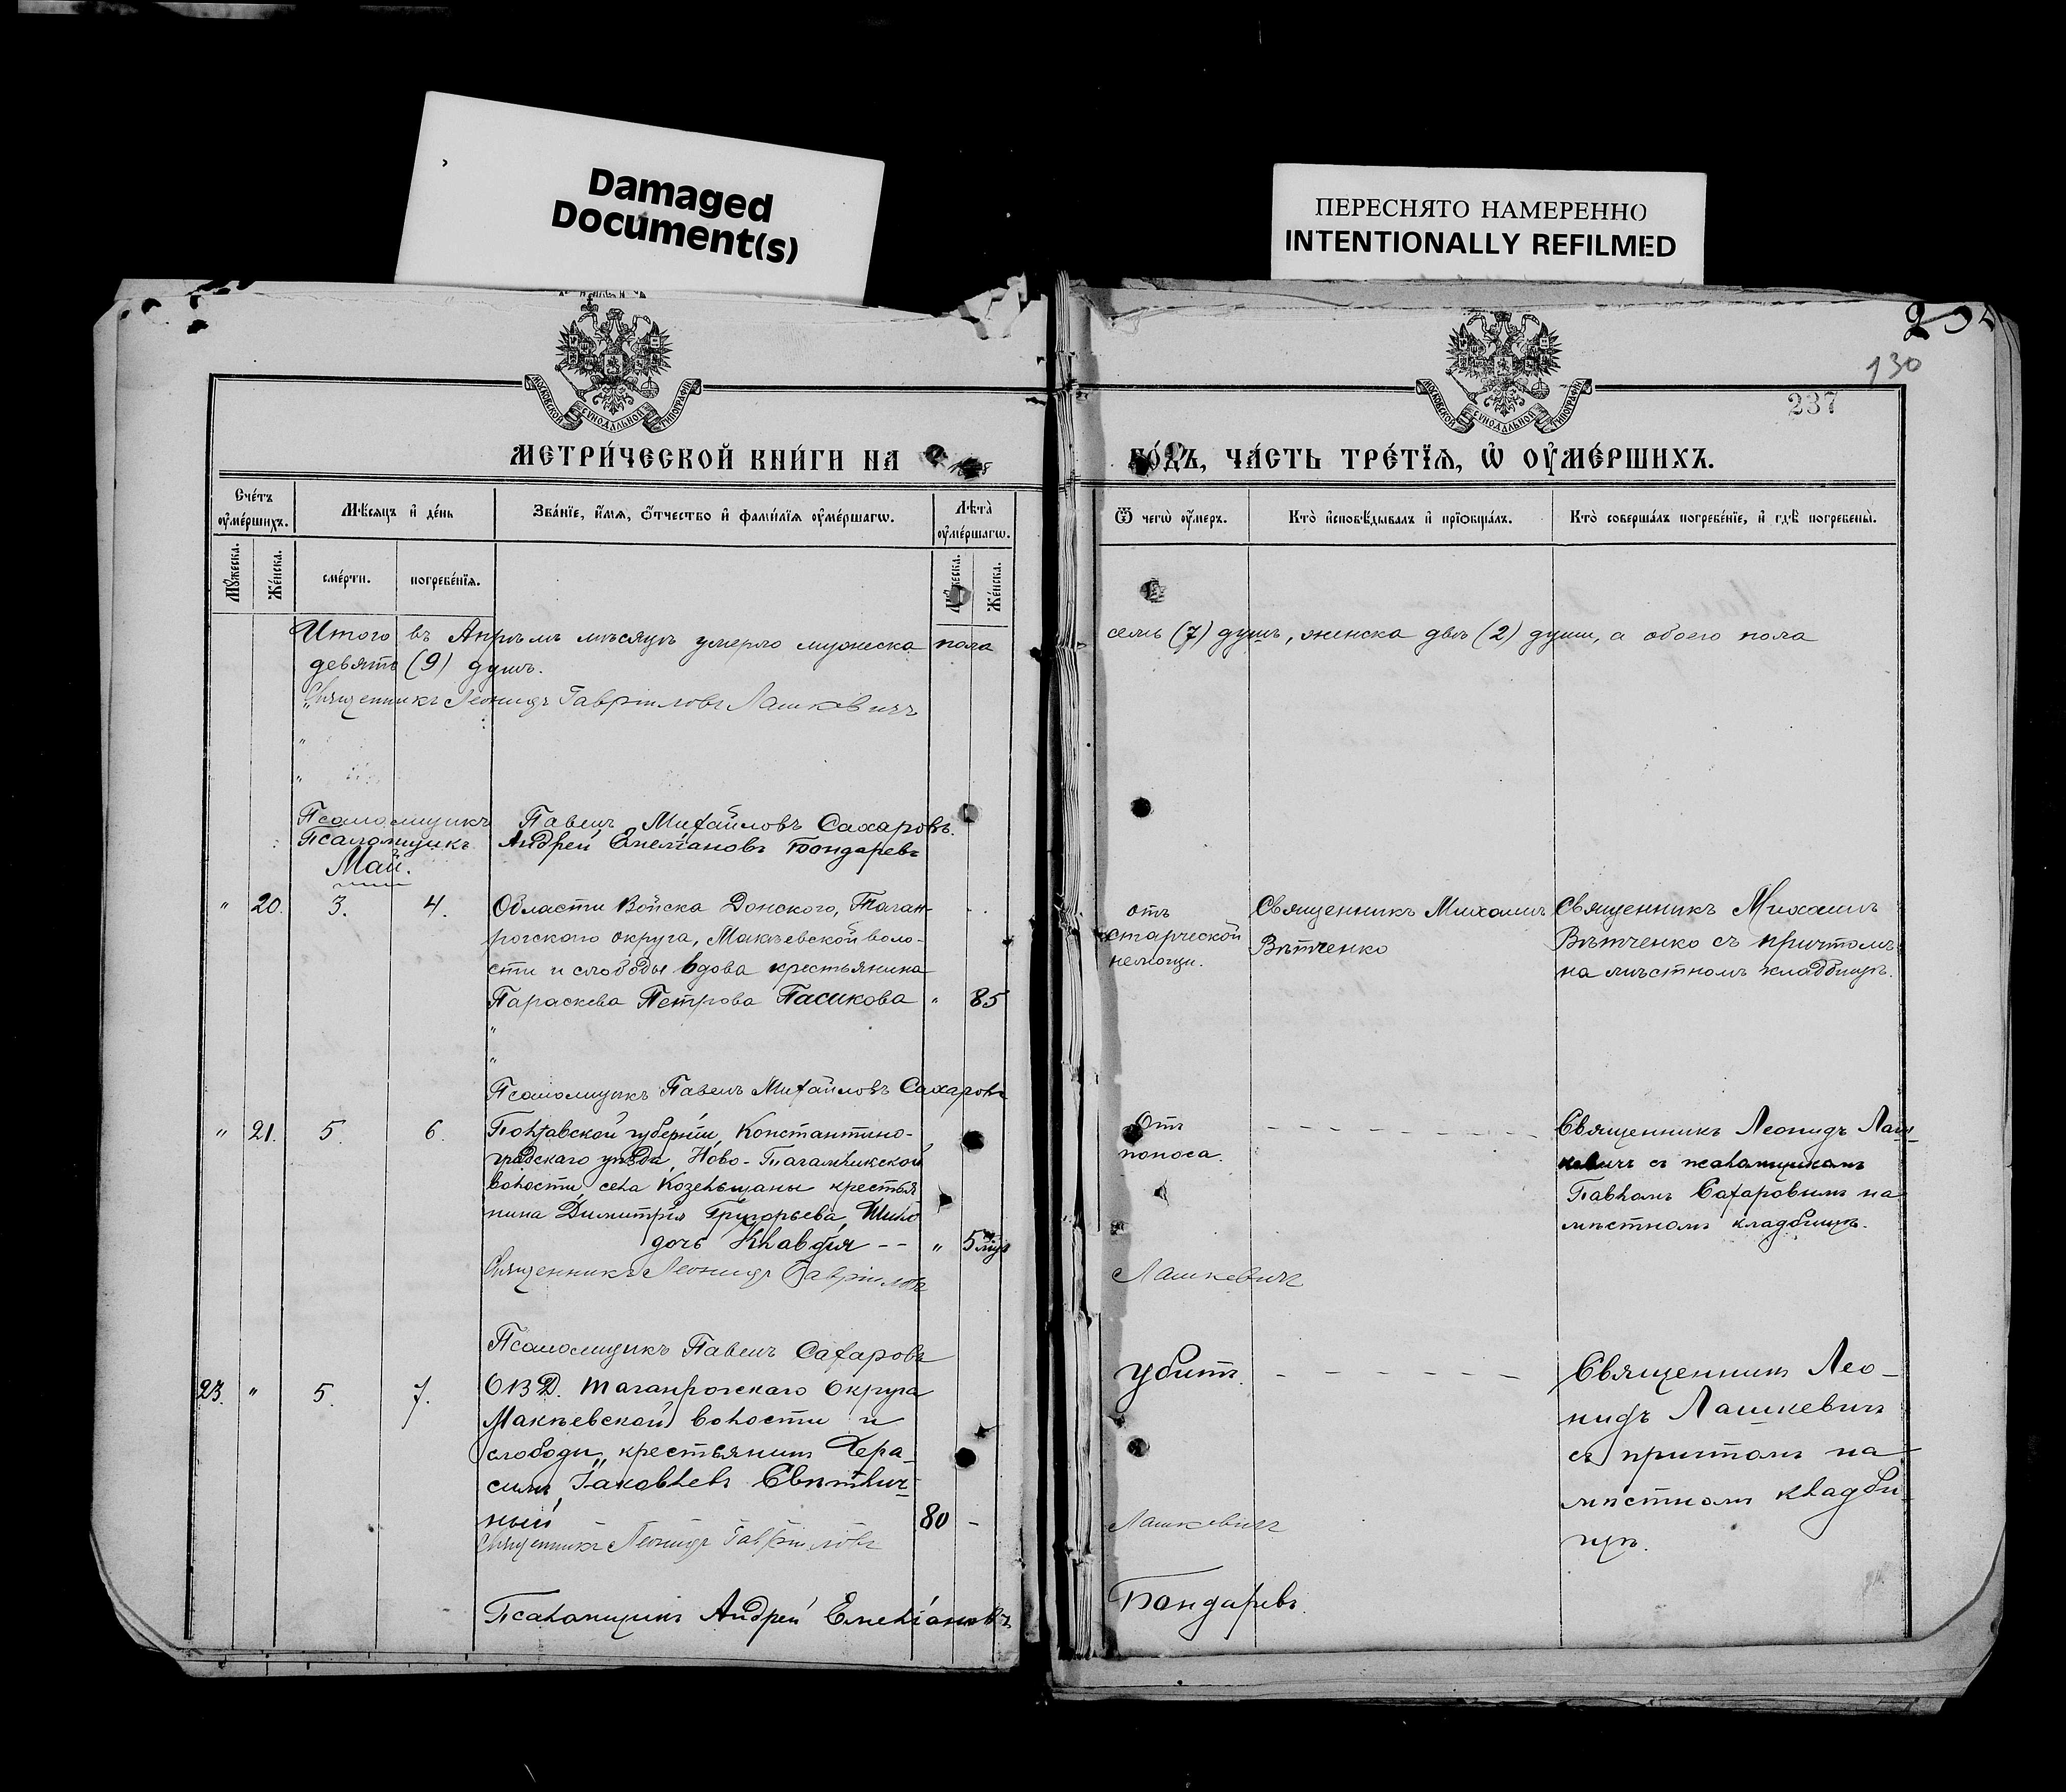 Damaged
Document(s)
ПЕРЕСНЯТО НАМЕРЕННО
INTENTIONALLY REFILMED
130
237
МОСКОВСКОЙ СѴНОДАЛЬНОЙ ТИПОГРАФІИ
МОСКОВСКОЙ СѴНОДАЛЬНОЙ ТИПОГРАФІИ
МЕТРИ́ЧЕСКОЙ КНИ́ГИ НА
ГО́ДЪ, ЧА́СТЬ ТРЕ́ТЇѦ, Ѡ҆ ОУ҆МЕ́РШИХЪ.
Сче́тъ оу҆ме́ршихъ.
Мѣ́сяцъ и҆ де́нь
Зва́нїе, и҆́мѧ, ѻ҆́тчество и҆ фами́лїѧ оу҆ме́ршагѡ.
Лѣ́та оу҆ме́ршагѡ.
Ѿ чегѡ̀ оу҆́меръ.
Кто̀ и҆сповѣ́дывалъ и҆ прїѡбща́лъ.
Кто̀ соверша́лъ погребе́нїе, и҆ гдѣ̀ погребены̀.
Мꙋ́жеска.
Же́нска.
сме́рти.
погребе́нїѧ.
Мꙋ́жеска.
Же́нска.
Итого въ Апрѣлѣ мѣсяцѣ умерло мужеска пола семь (7) душъ, женска двѣ (2) души, а обоего пола
девять (9) душъ.
Священникъ Леонидъ Гавріиловъ Лашкевичъ
Псаломщикъ Павелъ Михайловъ Сахаровъ.
Псаломщикъ Андрей Емеліановъ Бондаревъ
Май.
" 20. 3. 4. Области Войска Донского, Таган-
рогскаго округа, Макѣевской воло-
сти и слободы вдова крестьянина
Параскева Петрова Пасикова " 85
отъ
старческой
немощи.
Священникъ Михаилъ
Вѣтченко
Священникъ Михаилъ
Вѣтченко съ причтомъ
на мѣстномъ кладбищѣ.
Псаломщикъ Павелъ Михайловъ Сахаровъ
" 21. 5. 6. Полтавской губерніи, Константино-
градскаго уѣзда, Ново-Тагамлыкской
волости, села Козельщаны крестья
нина Димитрія Григорьева
дочь Клавдія -- " 5 мѣс
Отъ
поноса.
Священникъ Леонидъ Лаш-
кевичъ съ псаломщикомъ
Павломъ Сахаровымъ на
мѣстномъ кладбищѣ.
Священникъ Леонидъ Гавріиловъ Лашкевичъ
Псаломщикъ Павелъ Сахаровъ
23. " 5. 7. ОВД. Таганрогскаго Округа
Макѣевской волости и
слободы, крестьянинъ Гера-
симъ Іаковлевъ Свѣтлич-
ный 80 -
убитъ.
Священникъ Лео-
нидъ Лашкевичъ
съ причтомъ на
мѣстномъ кладби
щѣ.
Священникъ Леонидъ Гавріиловъ Лашкевичъ
Псаломщикъ Андрей Емеліановъ Бондаревъ.